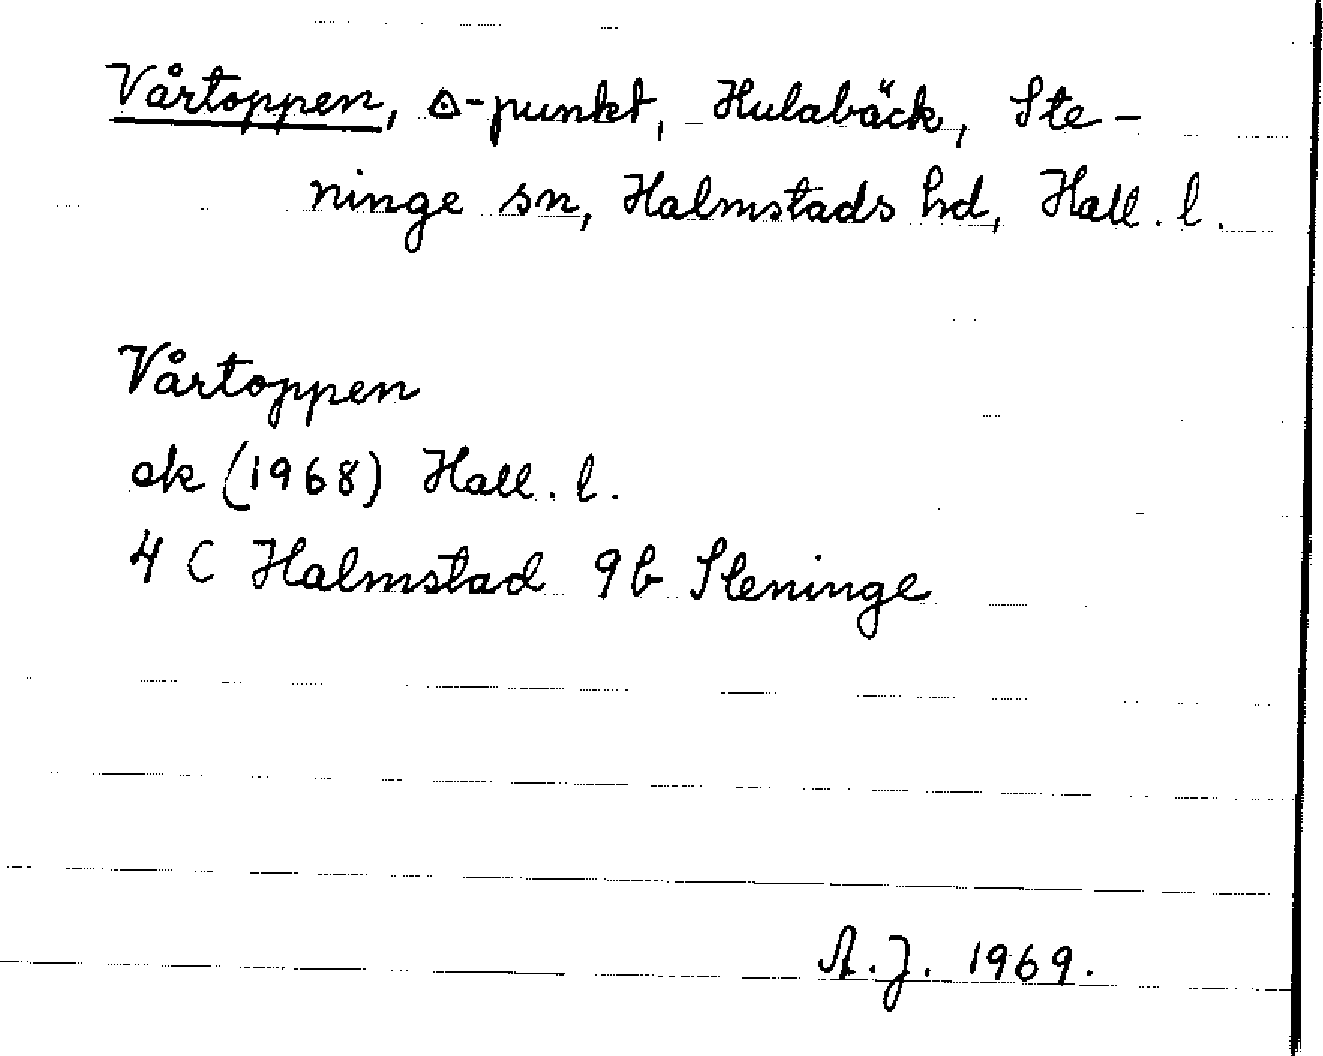 Vårtoppen, △-punkt, Hulabäck, Ste-
ninge sn, Halmstads hd, Hall. l.
Vårtoppen
ek (1968) Hall. l.
4 C Halmstad 9b Steninge
A.J. 1969.